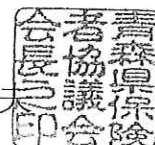 青森県保険
者協議会
会長之印